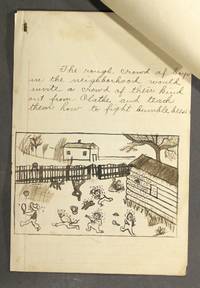 The rough crowd of boys
in the neighborhood would
invite a crowd of their kind
out from Olathe and teach
them how to fight bumble bees